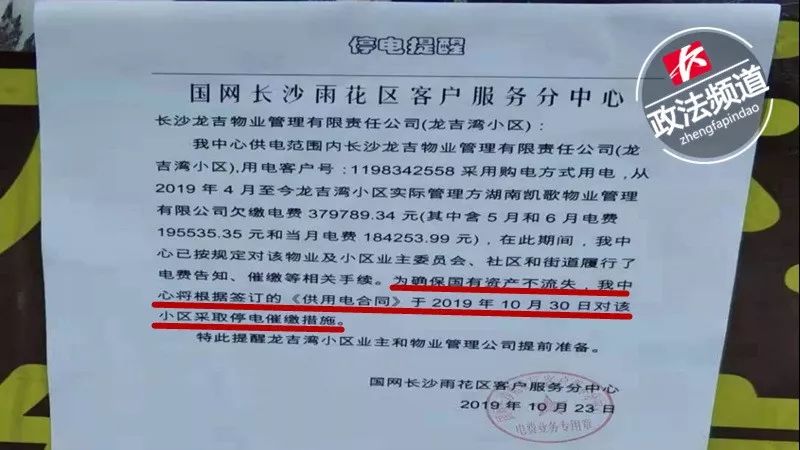 停电提醒
国网长沙雨花区客户服务分中心
长沙龙吉物业管理有限责任公司(龙吉湾小区)：
我中心供电范围内长沙龙吉物业管理有限责任公司(龙
吉湾小区),用电客户号：1198342558 采用购电方式用电,从
2019 年 4 月至今龙吉湾小区实际管理方湖南凯歌物业管理
有限公司欠缴电费 379789.34 元(其中含 5 月和 6 月电费
195535.35 元和当月电费 184253.99 元)，在此期间，我中
心已按规定对该物业及小区业主委员会、社区和街道履行了
电费告知、催缴等相关手续。为确保国有资产不流失，我中
心将根据签订的《供用电合同》于 2019 年 10 月 30 日对该
小区采取停电催缴措施。
特此提醒龙吉湾小区业主和物业管理公司提前准备。
国网长沙雨花区客户服务分中心
2019 年 10 月 23 日
电费业务专用章
政法频道
zhengfapindao